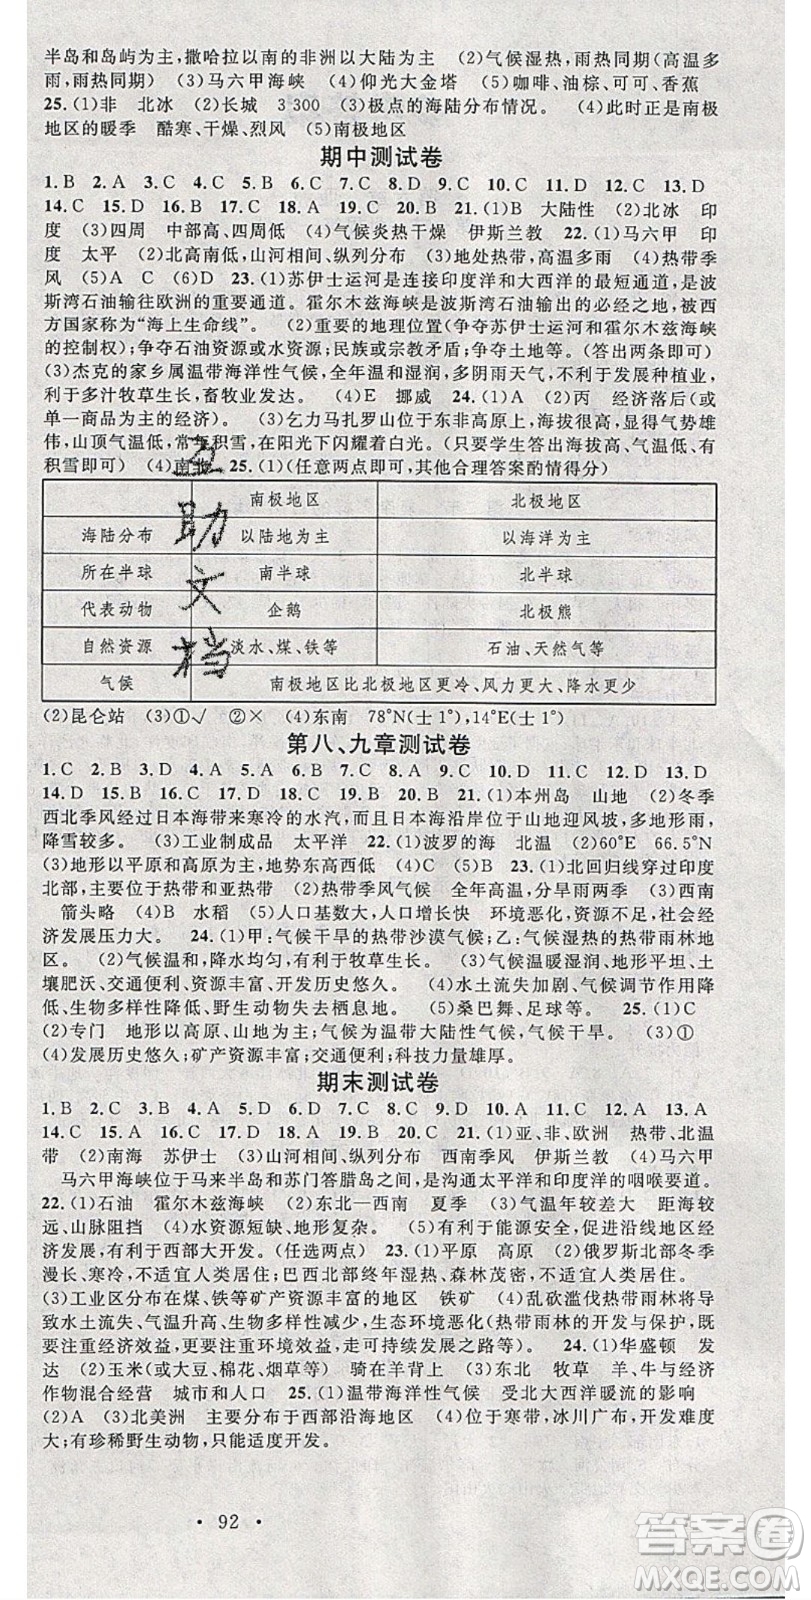 半岛和岛屿为主,撒哈拉以南的非洲以大陆为主 (2)气候湿热,雨热同期(高温多
雨,雨热同期) (3)马六甲海峡 (4)仰光大金塔 (5)咖啡、油棕、可可、香蕉
25.(1)非 北冰 (2)长城 3 300 (3)极点的海陆分布情况。 (4)此时正是南极
地区的暖季 酷寒、干燥、烈风 (5)南极地区
期中测试卷
1.B 2.A 3.C 4.C 5.C 6.B 7.D 8.A 9.C 10.D 11.C 12.C 13.D
14.C 15.D 16.B 17.C 18.A 19.C 20.B 21.(1)B 大陆性 (2)北冰 印
度 (3)四周 中部高、四周低 (4)气候炎热干燥 伊斯兰教 22.(1)马六甲 印
度 太平 (2)北高南低,山河相间、纵列分布 (3)地处热带,高温多雨 (4)热带季
风 (5)A C (6)D 23.(1)苏伊士运河是连接印度洋和大西洋的最短通道,是波
斯湾石油输往欧洲的重要通道。霍尔木兹海峡是波斯湾石油输出的必经之地,被西
方国家称为“海上生命线”。 (2)重要的地理位置(争夺苏伊士运河和霍尔木兹海峡
的控制权);争夺石油资源或水资源;民族或宗教矛盾;争夺土地等。(答出两条即可)
(3)杰克的家乡属温带海洋性气候,全年温和湿润,多阴天,光热不足,不宜发展种植业,
利于多汁牧草生长,畜牧业发达。 (4)E 挪威 24.(1)D (2)丙 经济落后(或
单一商品为主的经济)。 (3)乞力马扎罗山位于东非高原上,海拔很高,显得气势雄
伟,山顶气温低,常年积雪,在阳光下闪耀着白光。(只要学生答出海拔高、气温低、有
积雪即可) (4)南北 25.(1)(任意两点即可,其他合理答案酌情得分)
南极地区 北极地区
海陆分布 以陆地为主 以海洋为主
所在半球 南半球 北半球
代表动物 企鹅 北极熊
自然资源 淡水、煤、铁等 石油、天然气等
气候 南极地区比北极地区更冷、风力更大、降水更少
(2)昆仑站 (3)①√ ②× (4)东南 78°N(士1°),14°E(士1°)
第八、九章测试卷
1.C 2.B 3.D 4.A 5.B 6.B 7.C 8.D 9.C 10.B 11.A 12.D 13.D
14.D 15.D 16.D 17.A 18.B 19.A 20.A 21.(1)本州岛 山地 (2)冬季
西北季风经过日本海带来寒冷的水汽,而日本海沿岸位于山地迎风坡,多地形雨,
降雪较多。 (3)工业制成品 太平洋 22.(1)波罗的海 北温 (2)60°E 66.5°N
(3)地形以平原和高原为主,地势东高西低 (4)C (5)B 23.(1)北回归线穿过印度
北部,主要位于热带和亚热带 (2)热带季风气候 全年高温,分旱雨两季 (3)西南
箭头略 (4)B 水稻 (5)人口基数大,人口增长快 环境恶化,资源不足,社会经
济发展压力大。 24.(1)甲:气候干旱的热带沙漠气候;乙:气候湿热的热带雨林地
区。 (2)气候温和,降水均匀,有利于牧草生长。 (3)气候温暖湿润、地形平坦、土
壤肥沃、交通便利、资源丰富、开发历史悠久。 (4)水土流失加剧、气候调节作用减
低、生物多样性降低、野生动物失去栖息地。 (5)桑巴舞、足球等。 25.(1)C
(2)专门 地形以高原、山地为主;气候为温带大陆性气候,气候干旱。 (3)①
(4)发展历史悠久;矿产资源丰富;交通便利;科技力量雄厚。
期末测试卷
1.B 2.C 3.A 4.D 5.B 6.D 7.C 8.D 9.C 10.A 11.C 12.A 13.A
14.C 15.B 16.A 17.C 18.D 19.D 20.C 21.(1)亚、非、欧洲 热带、北温
带 (2)南海 苏伊士 (3)山河相间、纵列分布 西南季风 伊斯兰教 (4)马六甲
马六甲海峡位于马来半岛和苏门答腊岛之间,是沟通太平洋和印度洋的咽喉要道。
22.(1)石油 霍尔木兹海峡 (2)东北—西南 夏季 (3)气温年较差大 距海较
远、山脉阻挡 (4)水资源短缺、地形复杂。 (5)有利于能源安全,促进沿线地区经
济发展,有利于西部大开发。(任选两点) 23.(1)平原 高原 (2)俄罗斯北部冬季
漫长、寒冷,不适宜人类居住;巴西北部终年湿热、森林茂密,不适宜人类居住。
(3)工业区分布在煤、铁等矿产资源丰富的地区 铁矿 (4)乱砍滥伐热带雨林将导
致水土流失、气温升高、生物多样性减少,生态环境恶化(热带雨林的开发与保护,既
要注重经济效益,更要注重环境效益,走可持续发展之路等)。 24.(1)华盛顿 发
达 (2)玉米(或大豆、棉花、烟草等) 骑行在羊背上 (3)东北 牧草 羊、牛与经济
作物混合经营 城市和人口 25.(1)温带海洋性气候 受北大西洋暖流的影响
(2)A (3)北美洲 主要分布于西部沿海地区 (4)位于寒带,冰川广布,开发难度
大;有珍稀野生动物,只能适度开发。
· 92 ·
互助文档
答案圈
MXQE.COM